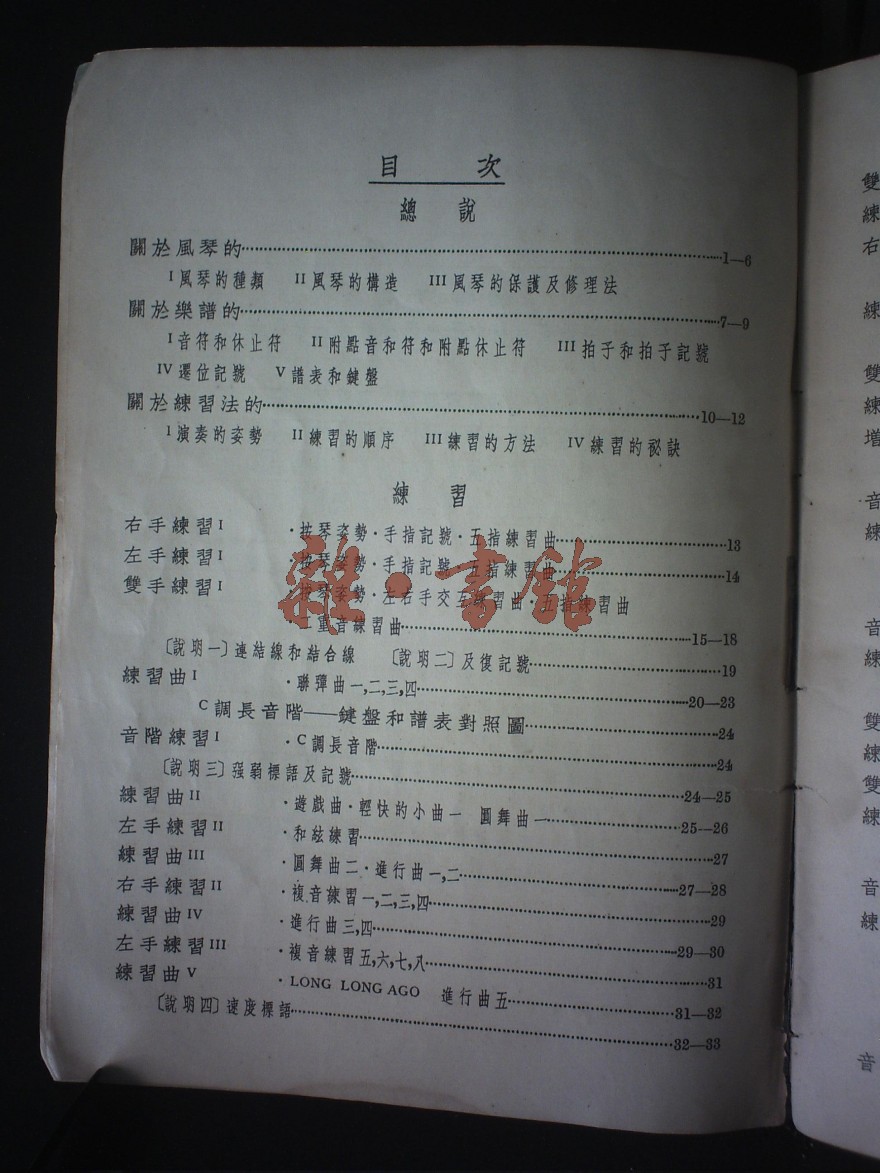 目 次
總 說
關於風琴的……1—6
I 風琴的種類 II 風琴的構造 III 風琴的保護及修理法
關於樂譜的……7—9
I 音符和休止符 II 附點音和符和附點休止符 III 拍子和拍子記號
IV 遷位記號 V 譜表和鍵盤
關於練習法的……10—12
I 演奏的姿勢 II 練習的順序 III 練習的方法 IV 練習的祕訣
練 習
右手練習 I ·按琴姿勢·手指記號·五指練習曲……13
左手練習 I ·按琴姿勢·手指記號·五指練習曲……14
雙手練習 I ·按琴姿勢·左右手交互練習曲·五指練習曲
二重音練習曲……15—18
〔說明一〕連結線和結合線 〔說明二〕及復記號……19
練習曲 I ·聯彈曲一,二,三,四……20—23
C 調長音階——鍵盤和譜表對照圖……24
音階練習 I ·C 調長音階……24
〔說明三〕强弱標語及記號……24—25
練習曲 II ·遊戲曲·輕快的小曲一 圓舞曲一……25—26
左手練習 II ·和絃練習……27
練習曲 III ·圓舞曲二·進行曲一,二……27—28
右手練習 II ·複音練習一,二,三,四……29
練習曲 IV ·進行曲三,四……29—30
左手練習 III ·複音練習五,六,七,八……31
練習曲 V ·LONG LONG AGO 進行曲五……31—32
〔說明四〕速度標語……32—33
雜·書館
雙
練
右
練
雙
練
增
·音
練
音
練
雙
練
雙
練
音
練
音